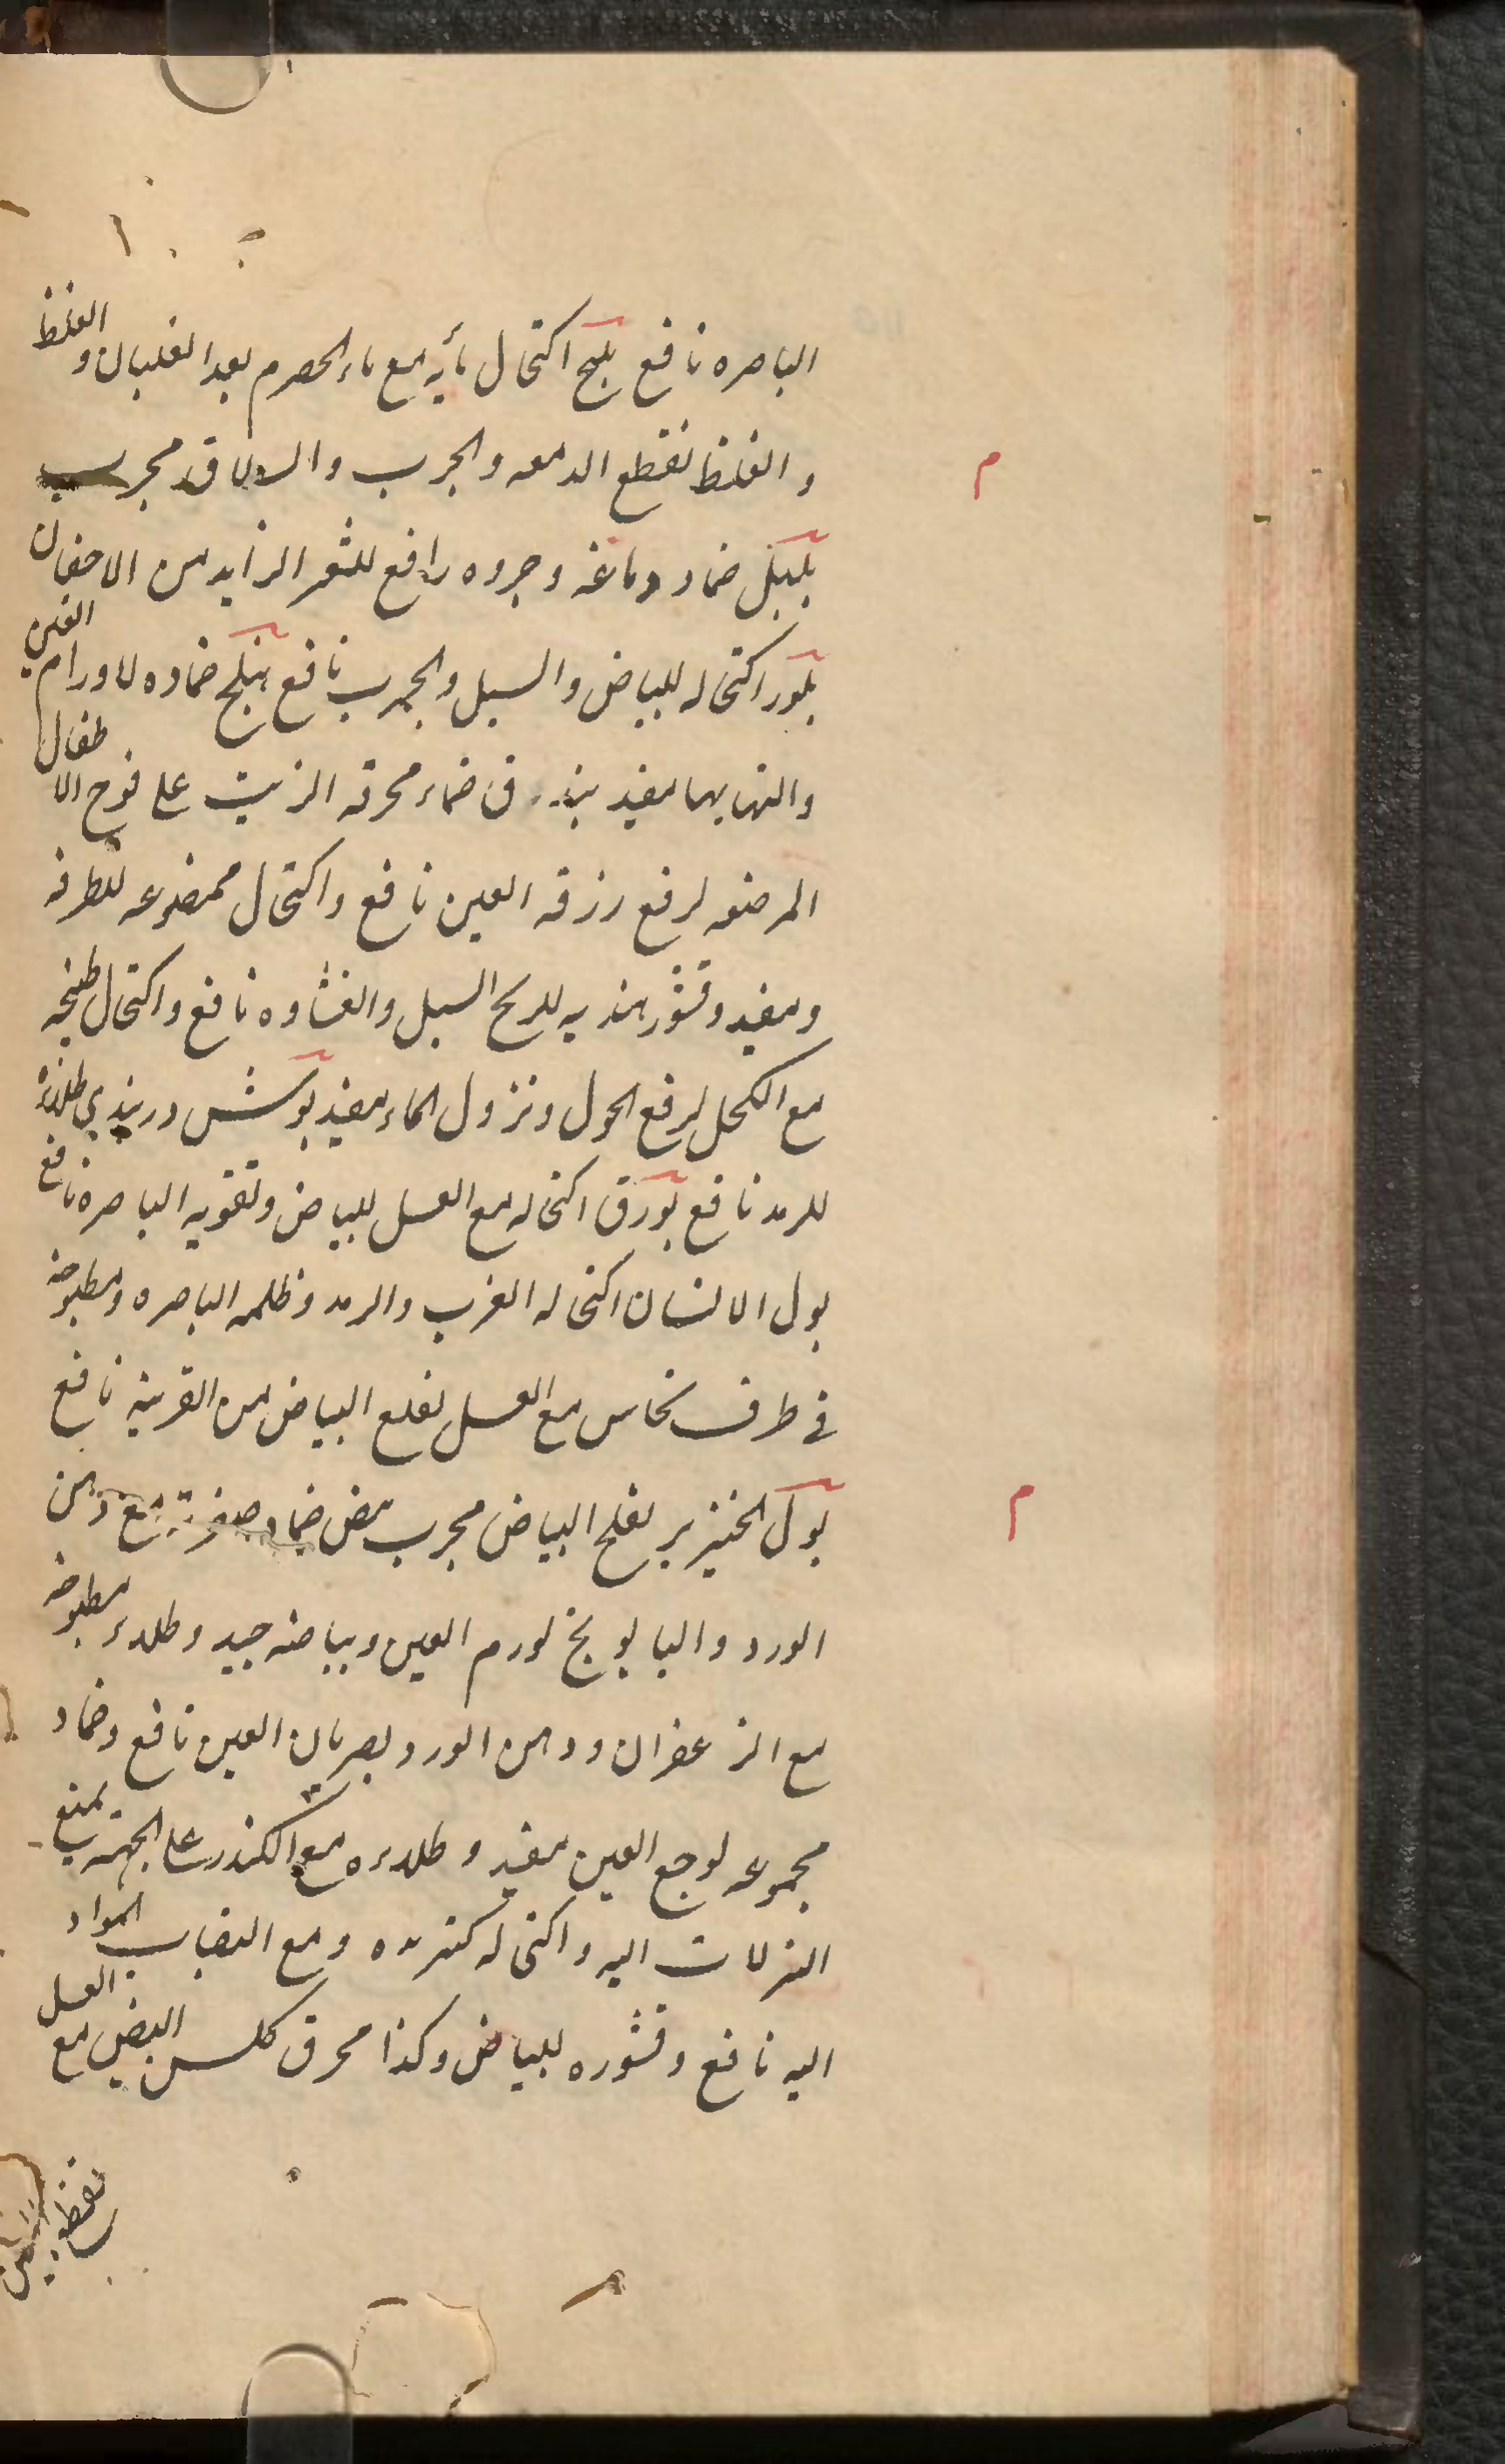 الباصره نافع بلح اكتحال مأيه مع ماء الحصرم بعد الغليان و الغلظ
م
و الغلظ لقطع الدمعه والجرب والسلاق مجرب
بلبل ضماد دماغه وجروه رافع للشعر الزايد من الاجفان
بلور اكتحاله للبياض والسبل والجرب نافع بنلج ضماده لاورام العين
والتهابها مفيد ضماد محرقه الزيت على فوخ الاطفال
المرضعه لرفع زرقه العين نافع واكتحال ممضوعه للطرفه
ومفيد وقشور هنديه للريح السبل والغشاوه نافع واكتحال طبخه
مع الكحل لرفع الحول ونزول الماء مفيد بوش دربندي طلاءه
للرمد نافع بورق اكتحاله مع العسل للبياض وتقويه الباصره نافع
بول الانسان اكتحاله الغرب والرمد وظلمه الباصره ومطبوخه
في ظرف نحاس مع العسل لقلع البياض من القرنيه نافع
م
بول الخنزير لقلع البياض مجرب بيض ضماد صفرته مع دهن
الورد والبابونج لورم العين وبياضه جيد وطلاء مطبوخه
مع الزعفران ودهن الورد لضربان العين نافع وضماد
مجموعه لوجع العين مفيد وطلاءه مع الكندر على الجبهه يمنع
النزلات اليه واكتحاله ومع انصباب المواد
اليه نافع وقشوره للبياض وكذا محرق كلس البيض مع العسل